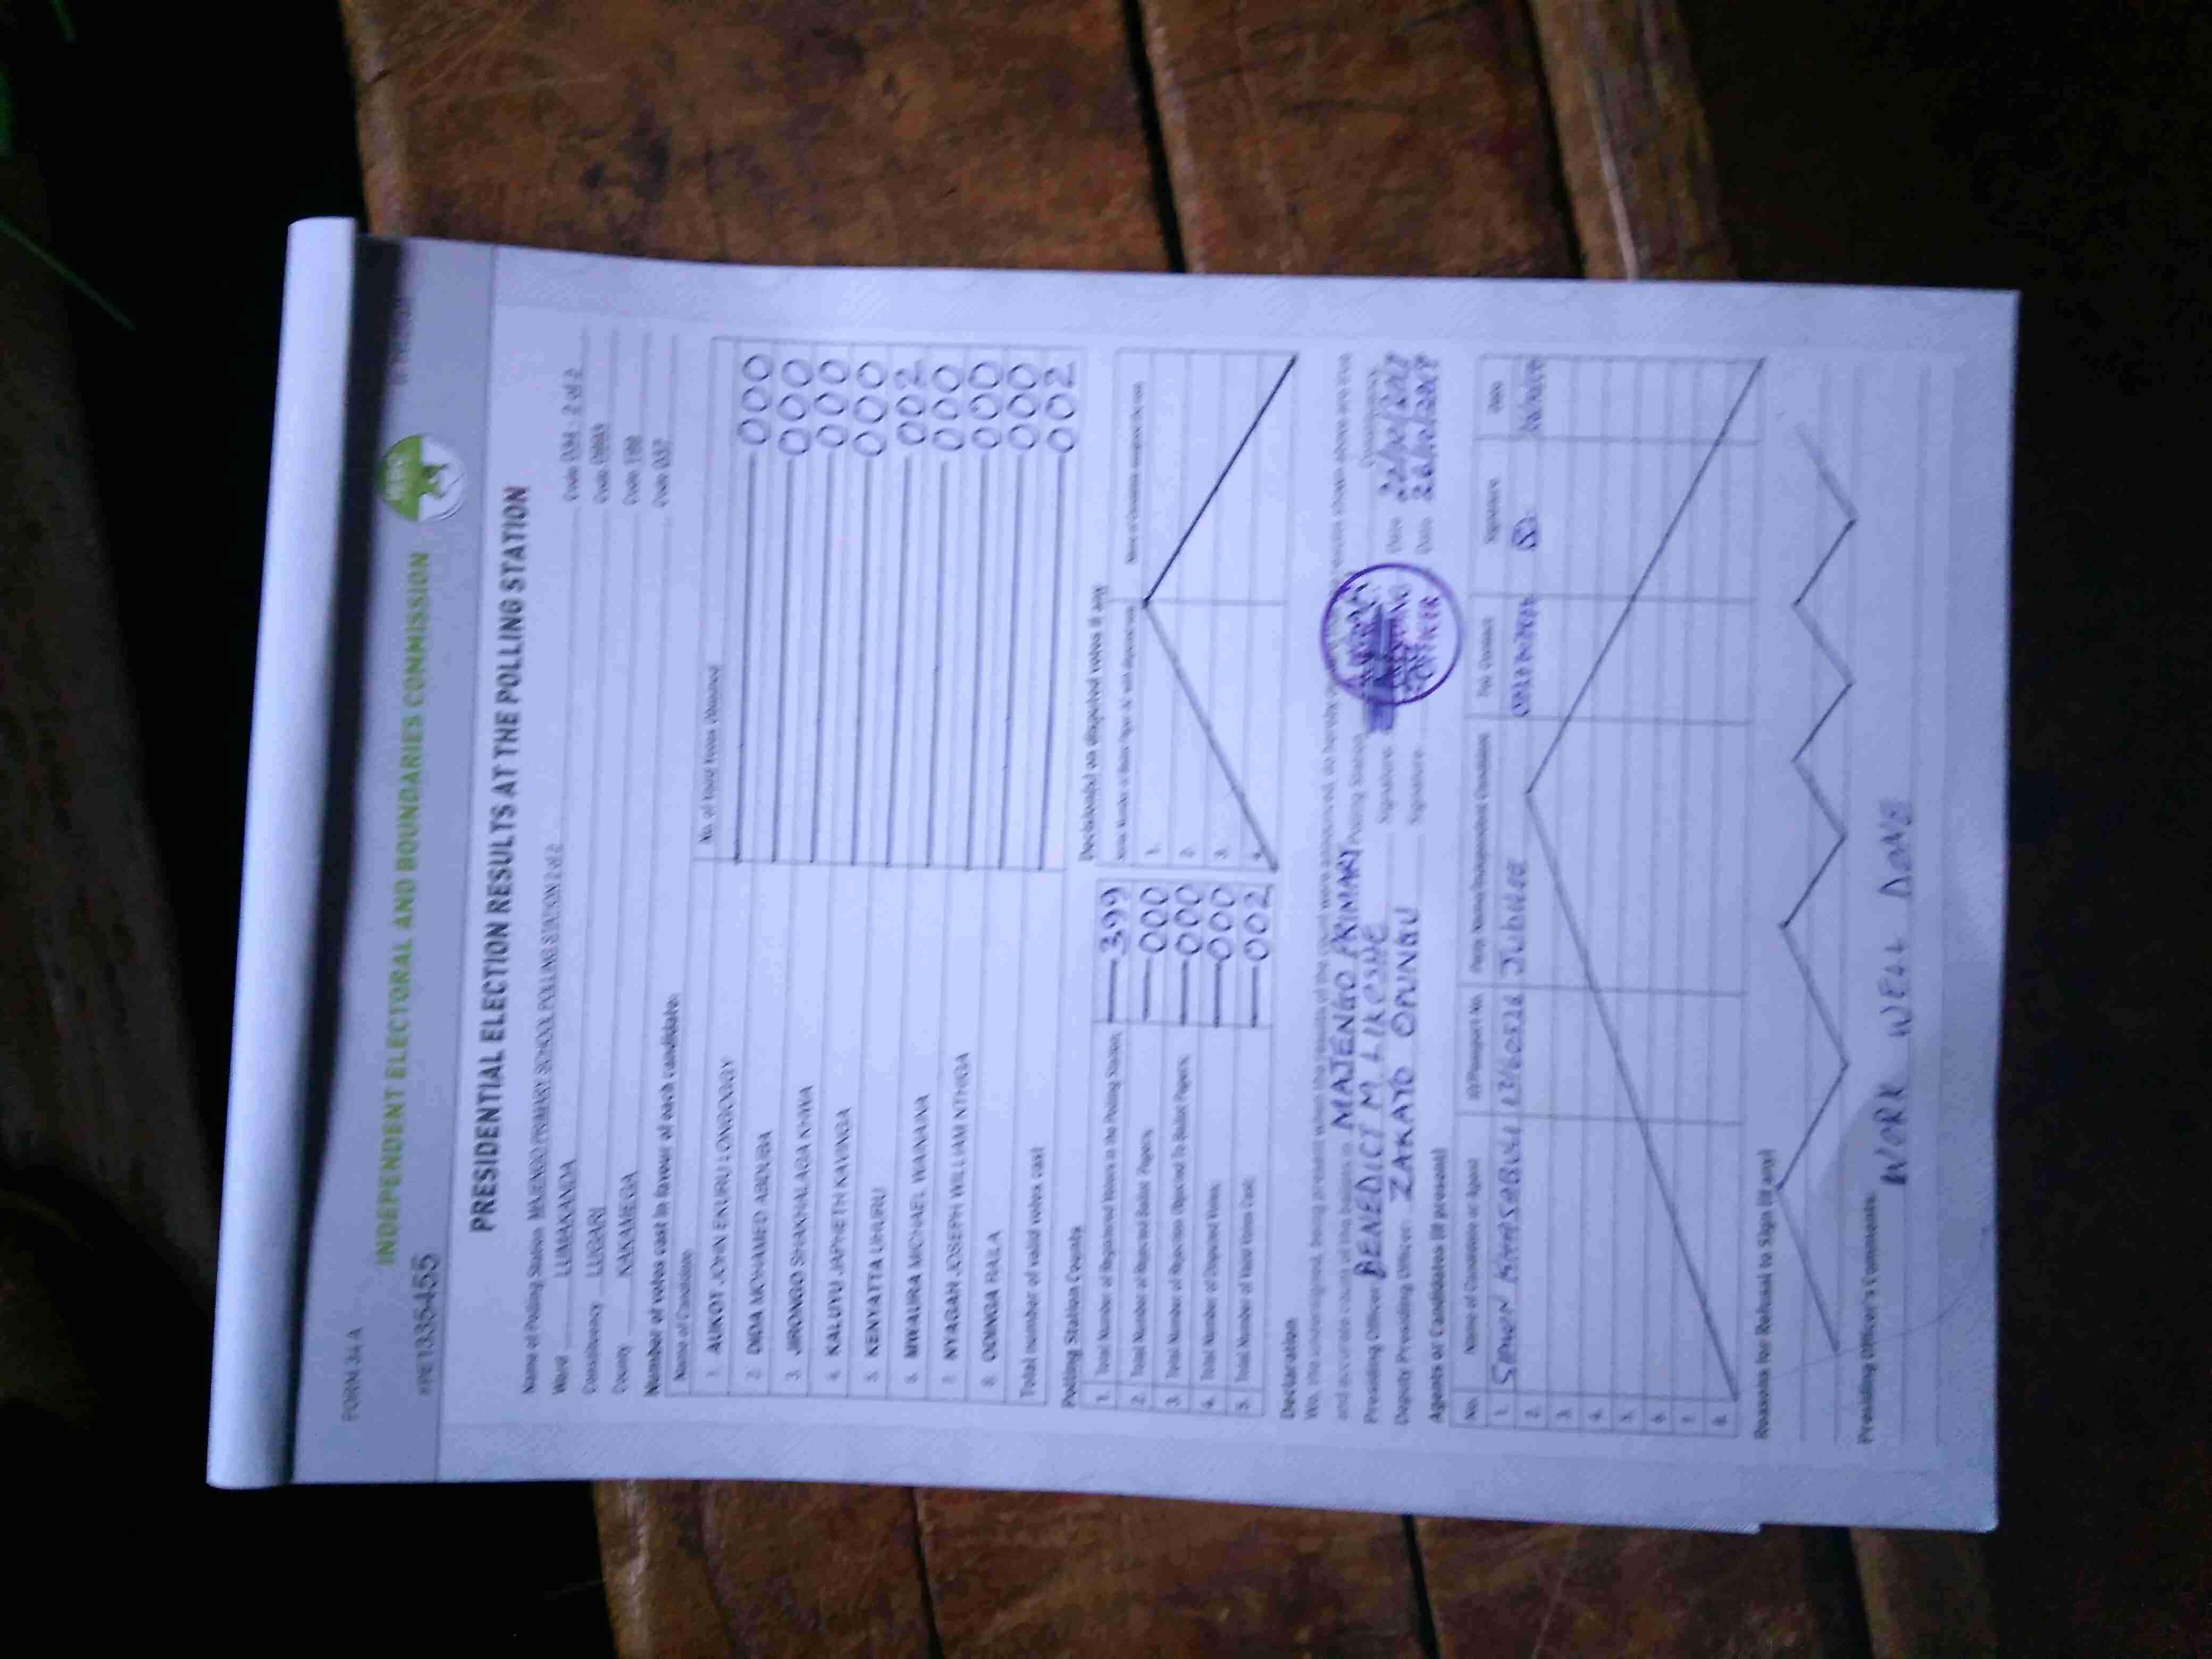 FORM 34A
INDEPENDENT ELECTORAL AND BOUNDARIES COMMISSION
PRESIDENTIAL ELECTION RESULTS AT THE POLLING STATION
Name of Polling Station MAJENGO PRIMARY SCHOOL POLLING STATION 2 of 2 Code 2 of 2
Ward LUMAKANDA Code
Constituency LUGARI Code
County KAKAMEGA Code 037
Number of votes cast in favour of each candidate:
Name of Candidate No. of Valid Votes Obtained
1. AUKOT JOHN EKURU LONGOGGY 000
2. DIDA MOHAMED ABDUBA 000
3. JIRONGO SHAKHALAGA KHWA 000
4. KALUYU JAPHETH KAVINGA 000
5. KENYATTA UHURU 002
6. MWAURA MICHAEL WAINAINA 000
7. NYAGAH JOSEPH WILLIAM NTHIGA 000
8. ODINGA RAILA 000
Total number of valid votes cast 002
Polling Station Counts
1. Total Number of Registered Voters in the Polling Station 399
2. Total Number of Rejected Ballot Papers 000
3. Total Number of Rejection Objected To Ballot Papers 000
4. Total Number of Disputed Votes 000
5. Total Number of Valid Votes Cast 002
Decision(s) on disputed votes if any
1.
2.
3.
4.
Declaration
We, the undersigned, being present when the results of the count were announced, do hereby
and accurate count of the ballots in MAJENGO PRIMARY Polling Station
Presiding Officer BENEDICT M. LIKESHE Signature Date
Deputy Presiding Officer: ZAKAYO OPUNGU Signature Date 26/10/2017
Agents or Candidates (if present)
No. Name of Candidate or Agent ID/Passport No. Party Name/Independent Candidate Tel. Contact Signature Date
1. Jubilee
2.
3.
4.
5.
6.
7.
8.
Reasons for Refusal to Sign (if any)
Presiding Officer's Comments:
WORK WELL DONE